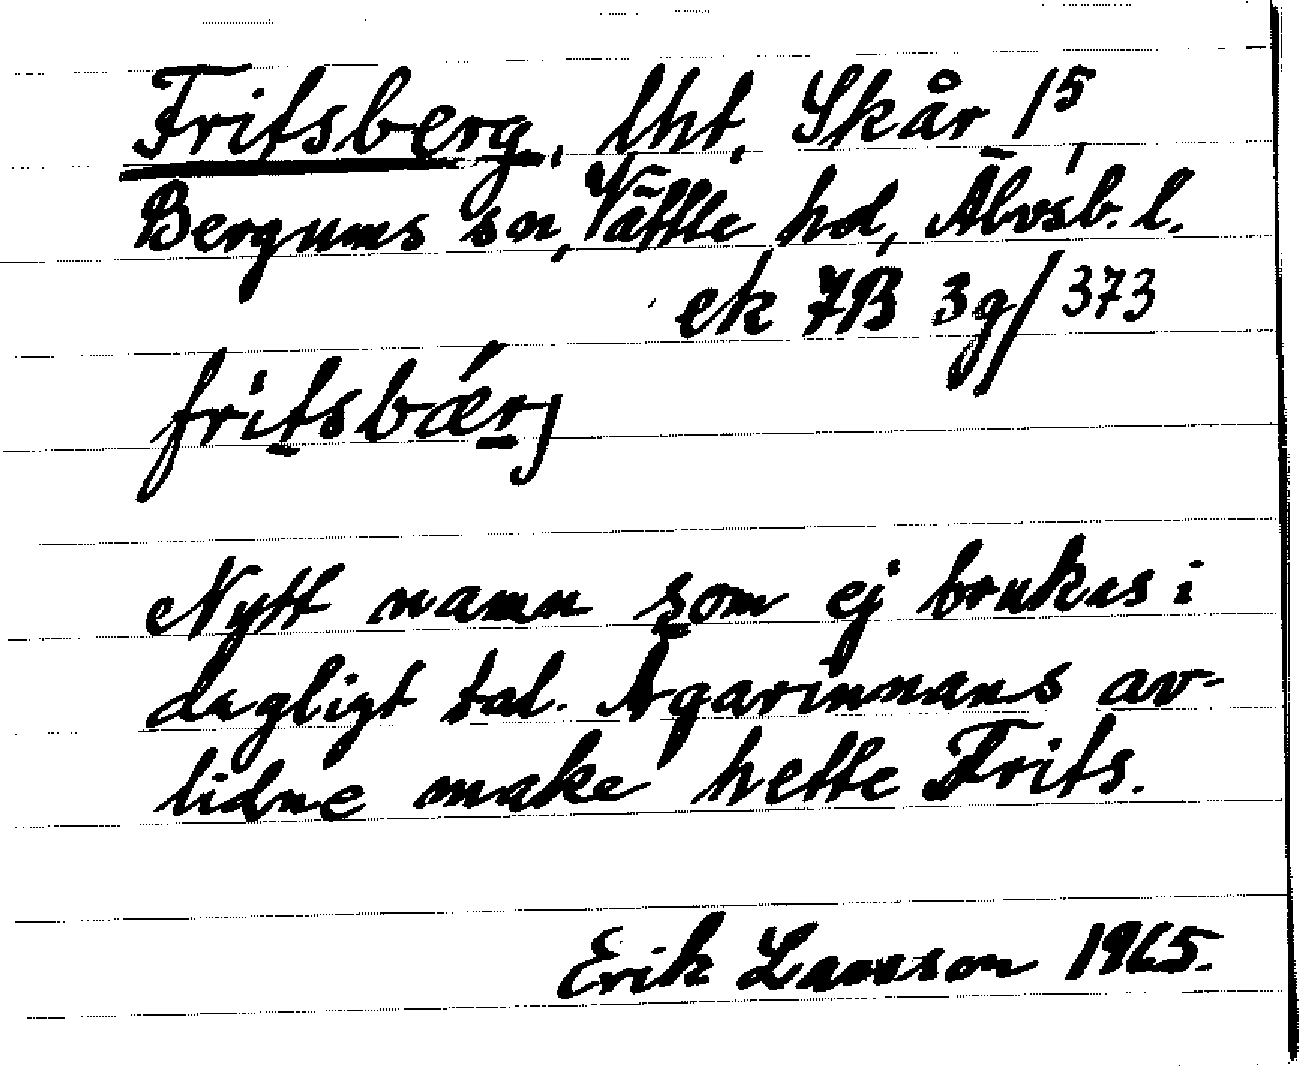 Fritsberg, lht, Skår 1⁵,
Bergums sn, Vättle hd, Älvsb. l.
ek 7B 3g/373
fritsbǽrj
Nytt namn som ej brukas i
dagligt tal. Ägarinnans av-
lidne make hette Frits.
Erik Larsson 1965.